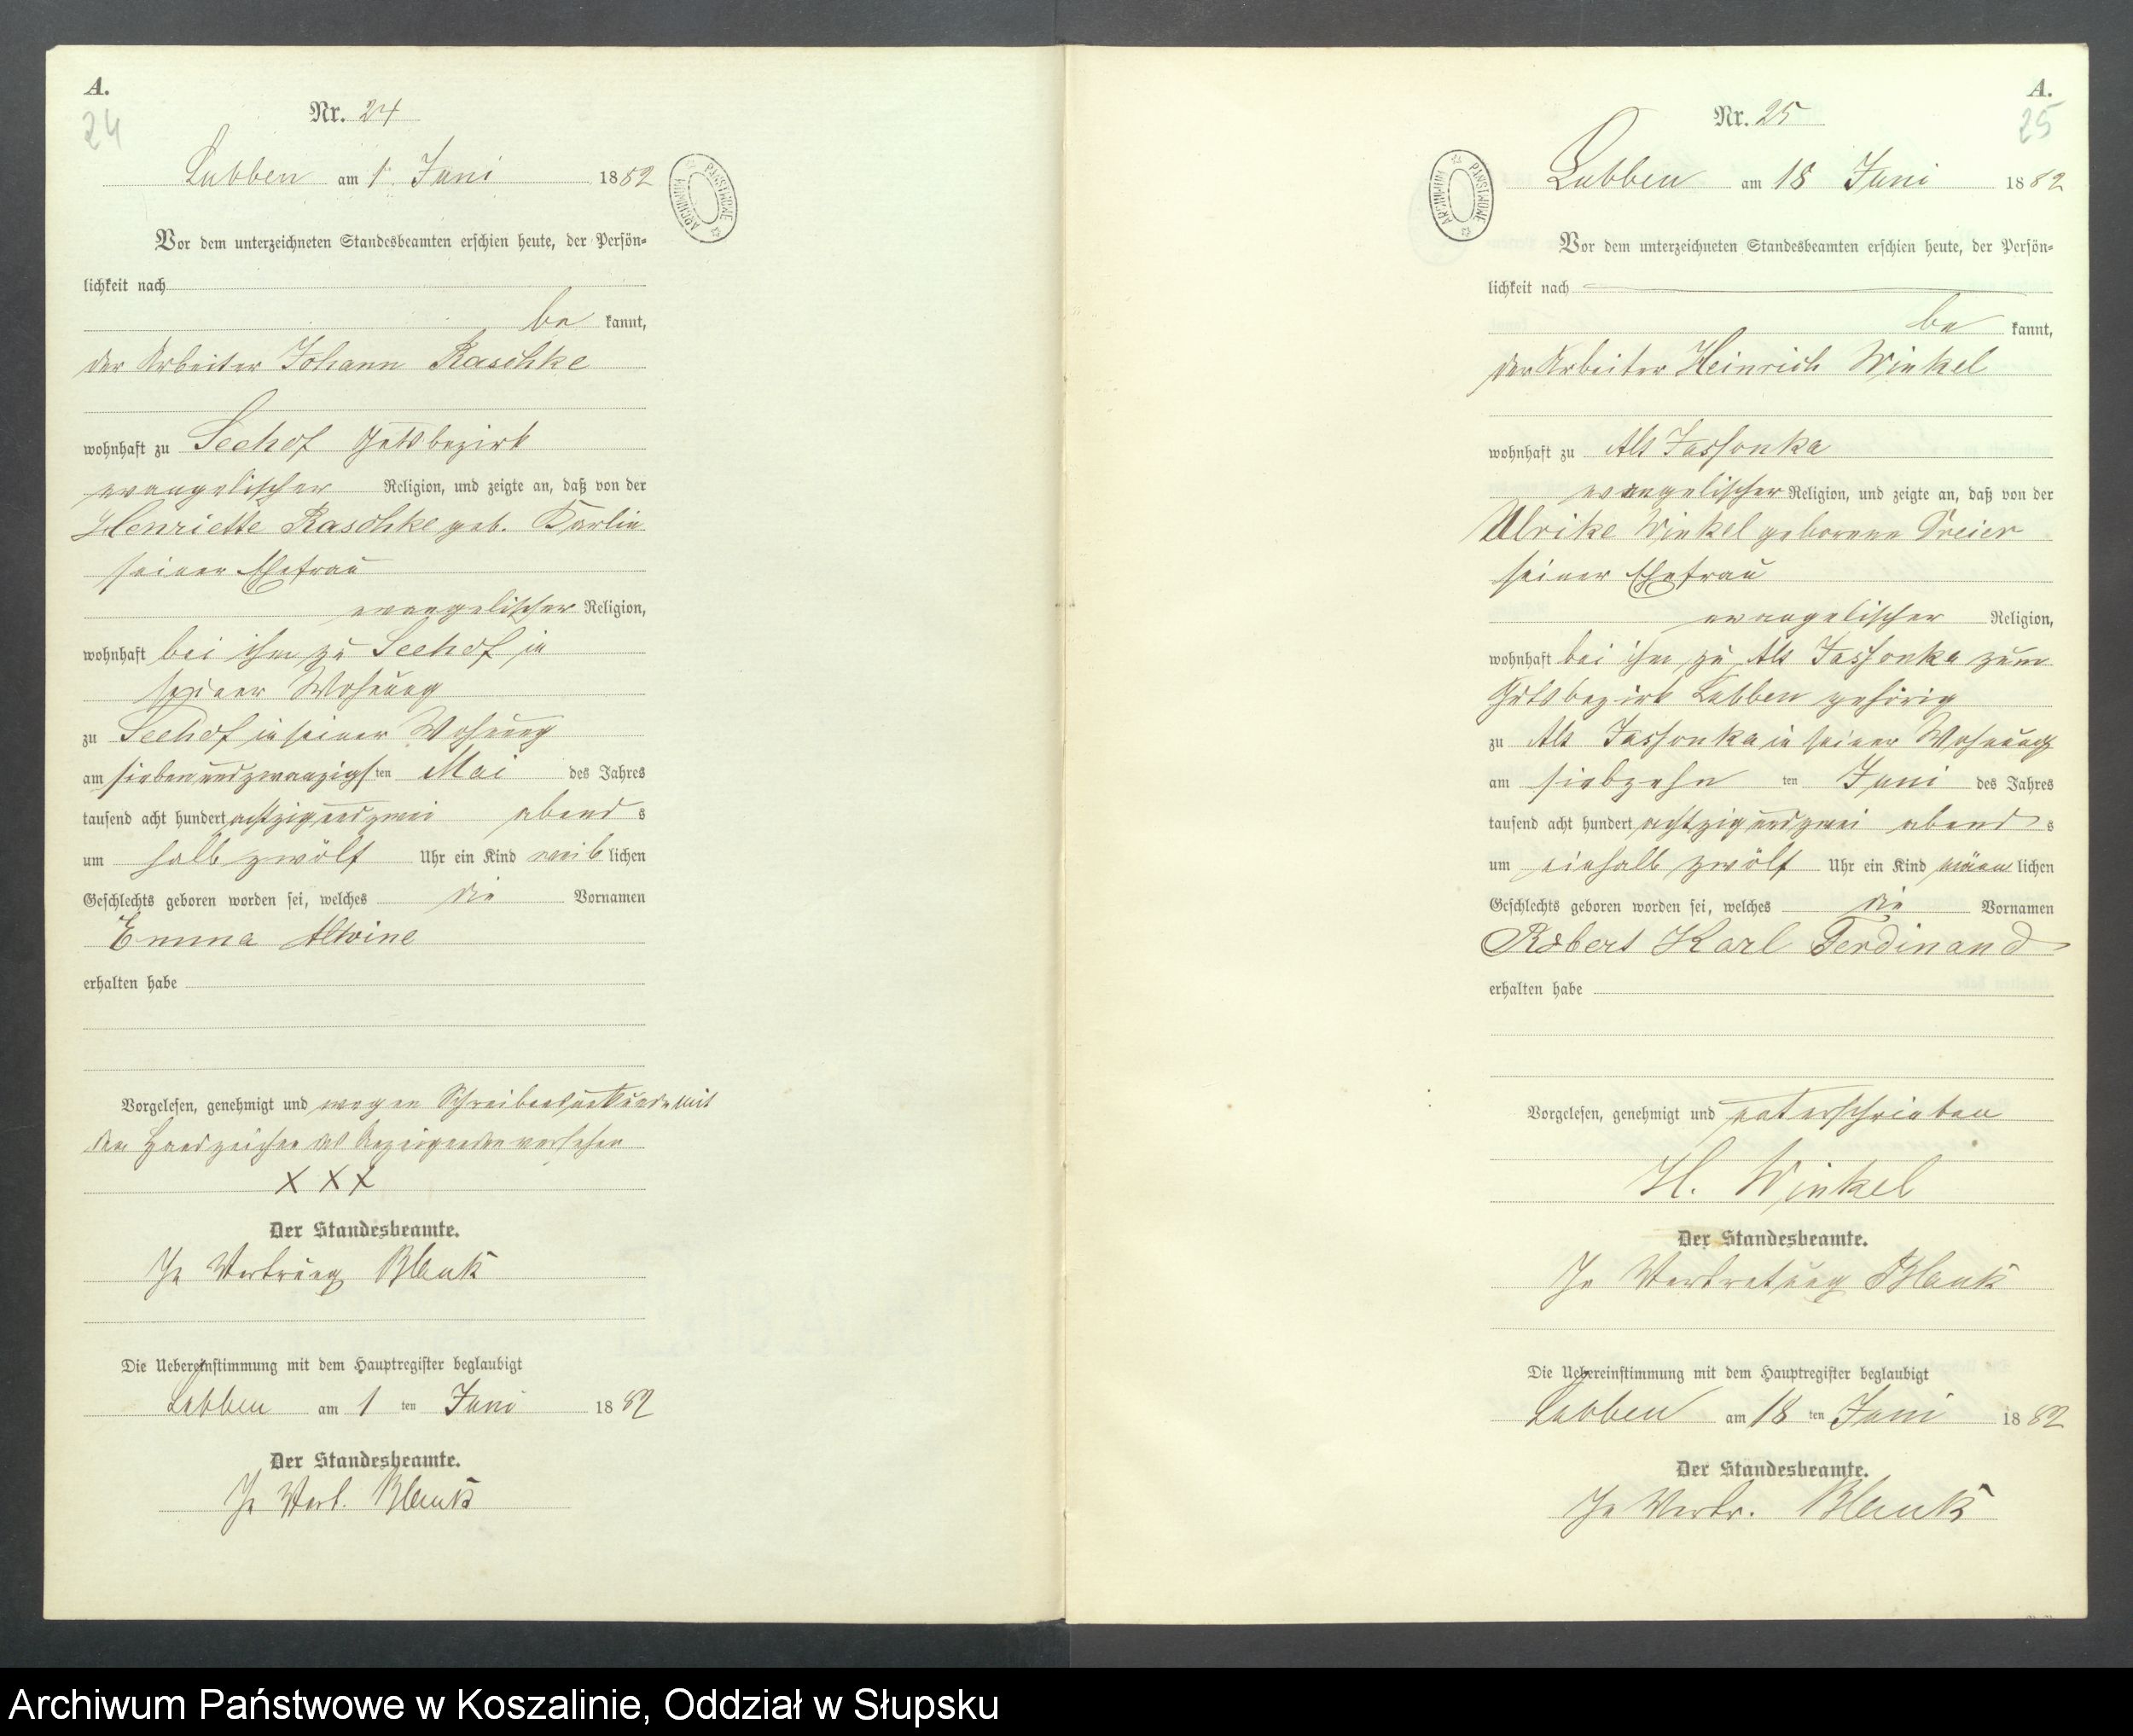 A.
24
Nr. 24
Lubben am 1. Juni 1882
ARCHIWUM PAŃSTWOWE
Vor dem unterzeichneten Standesbeamten erschien heute, der Persön=
lichkeit nach
be kannt,
der Arbeiter Johann Raschke
wohnhaft zu Seehof Gutsbezirk
evangelischer Religion, und zeigte an, daß von der
Henriette Raschke geb. Karlin
seiner Ehefrau
evangelischer Religion,
wohnhaft bei ihm zu Seehof in
seiner Wohnung
zu Seehof in seiner Wohnung
am siebenundzwanzigsten Mai des Jahres
tausend acht hundert achtzigundzwei abends
um halb zwölf Uhr ein Kind weiblichen
Geschlechts geboren worden sei, welches die Vornamen
Emma Alwine
erhalten habe
Vorgelesen, genehmigt und wegen Schreibensunkunde mit
den Handzeichen des Anzeigenden versehen
X X X
Der Standesbeamte.
In Vertrung Blank
Die Uebereinstimmung mit dem Hauptregister beglaubigt
Lubben am 1 ten Juni 1882
Der Standesbeamte.
In Vert. Blank
A.
25
Nr. 25
Lubben am 18 Juni 1882
ARCHIWUM PAŃSTWOWE
Vor dem unterzeichneten Standesbeamten erschien heute, der Persön=
lichkeit nach
be kannt,
der Arbeiter Heinrich Winkel
wohnhaft zu Alt Jassonka
evangelischer Religion, und zeigte an, daß von der
Ulrike Winkel geborene Dreier
seiner Ehefrau
evangelischer Religion,
wohnhaft bei ihm zu Alt Jassonka zum
Gutsbezirk Lubben gehörig
zu Alt Jassonka in seiner Wohnung
am siebzehn ten Juni des Jahres
tausend acht hundert achtzigundzwei abends
um einhalb zwölf Uhr ein Kind männlichen
Geschlechts geboren worden sei, welches die Vornamen
Robert Karl Ferdinand
erhalten habe
Vorgelesen, genehmigt und unterschrieben
H. Winkel
Der Standesbeamte.
In Vertretung Blank
Die Uebereinstimmung mit dem Hauptregister beglaubigt
Lubben am 18 ten Juni 1882
Der Standesbeamte.
In Vertr. Blank
Archiwum Państwowe w Koszalinie, Oddział w Słupsku